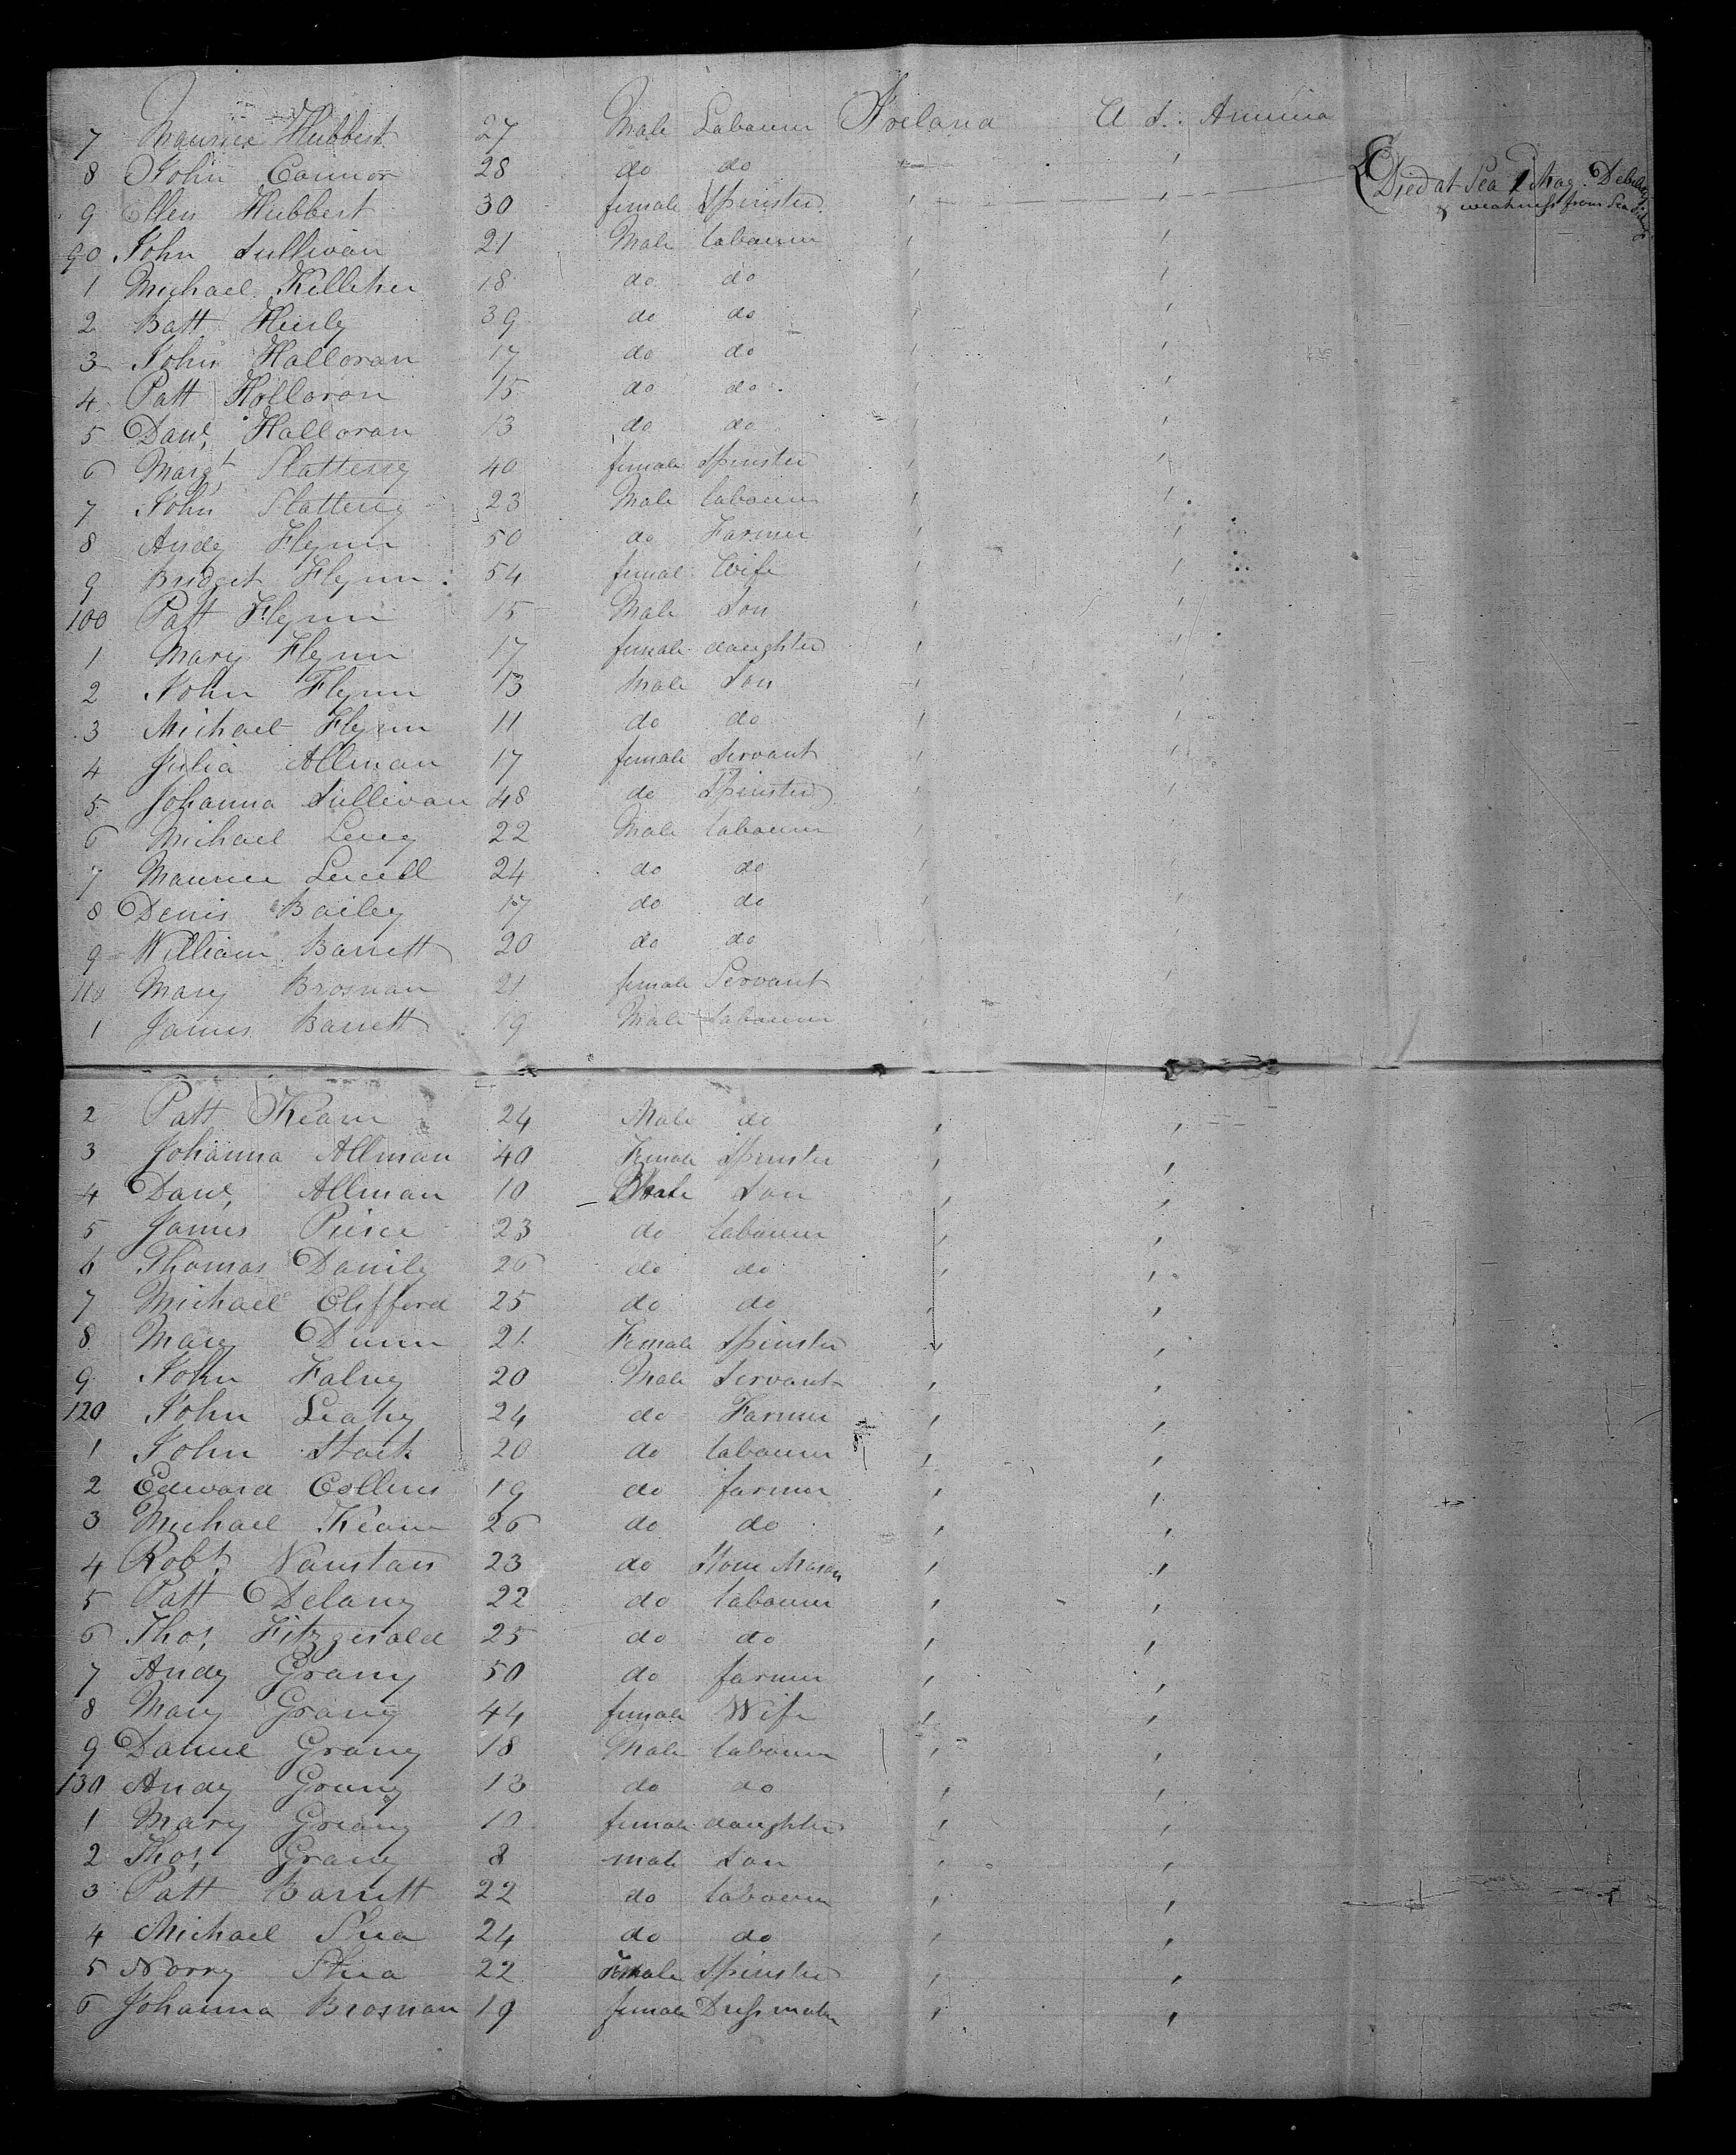 7 Maurice Hubbert 27 Male Labourer Ireland U S. America
8 John Connor 28 do do
9 Ellen Hubbert 30 female Spinster Died at Sea 1 May Debility & weakness from Sea
90 John Sullivan 21 Male labourer
1 Michael Kelliher 18 do do
2 Batt Hurly 39 do do
3 John Halloran 17 do do
4 Patt Halloran 15 do do
5 Danl, Halloran 13 do do
6 Margt, Slattery 40 female Spinster
7 John Slattery 23 Male labourer
8 Andy Flynn 50 do Farmer
9 Bridget Flynn 54 female Wife
100 Patt Flynn 15 Male Son
1 Mary Flynn 17 female daughter
2 John Flynn 13 Male Son
3 Michael Flynn 11 do do
4 Julia Allman 17 female Servant
5 Johanna Sullivan 48 do Spinster
6 Michael Lucy 22 Male labourer
7 Maurice 24 do do
8 Denis Bailey 17 do do
9 William Barrett 20 do do
110 Mary Brosnan 21 female Servant
1 James Barrett 19 Male labourer
2 Patt Keane 24 Male do
3 Johanna Allman 40 Female Spinster
4 Danl, Allman 10 Male Son
5 James Pierce 23 do labourer
6 Thomas 26 do do
7 Michael Clifford 25 do do
8 Mary Dunn 21 Female Spinster
9 John Falvy 20 Male Servant
120 John Leahy 24 do Farmer
1 John Stack 20 do labourer
2 Edward Collins 19 do farmer
3 Michael Keane 26 do do
4 Robt. 23 do Stone Mason
5 Patt Delany 22 do labourer
6 Thos, Fitzgerald 25 do do
7 Andy Grany 50 do farmer
8 Mary Grany 44 female Wife
9 Daniel Grany 18 Male labourer
130 Andy Grany 13 do do
1 Mary Greany 10 female daughter
2 Thos, Grany 8 male Son
3 Patt Barrett 22 do labourer
4 Michael Shea 24 do do
5 Norry Shea 22 Female Spinster
6 Johanna Brosnan 19 female Dressmaker